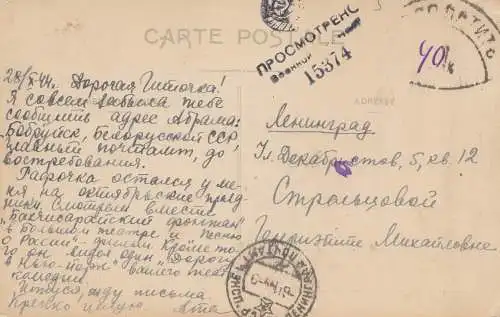 CARTE POSTALE
ПРОСМОТРЕНО
Военной
15374
ДОПЛАТИТЬ
40 к
28/X-44 г. Дорогая Итточка!
Я совсем забыла тебе
сообщить адрес Абрама:
Бобруйск, Белорусской ССР,
главный почтамт, до
востребования.
Рафочка остался у ме-
ня на октябрьские празд-
ники. Смотрели вместе
"Бахчисарайский фонтан"
в Большом театре и "Песню
о России" - фильм. Кроме то-
го он видел один "Дорогу
в Нью-Йорк" вашего театра
комедии.
Итуся, жду письма.
Крепко целую
ADRESSE
Ленинград
Ул. Декабристов, 5, кв. 12
Стрельцовой
Генриэтте Михайловне
ЛЕНИНГРАД